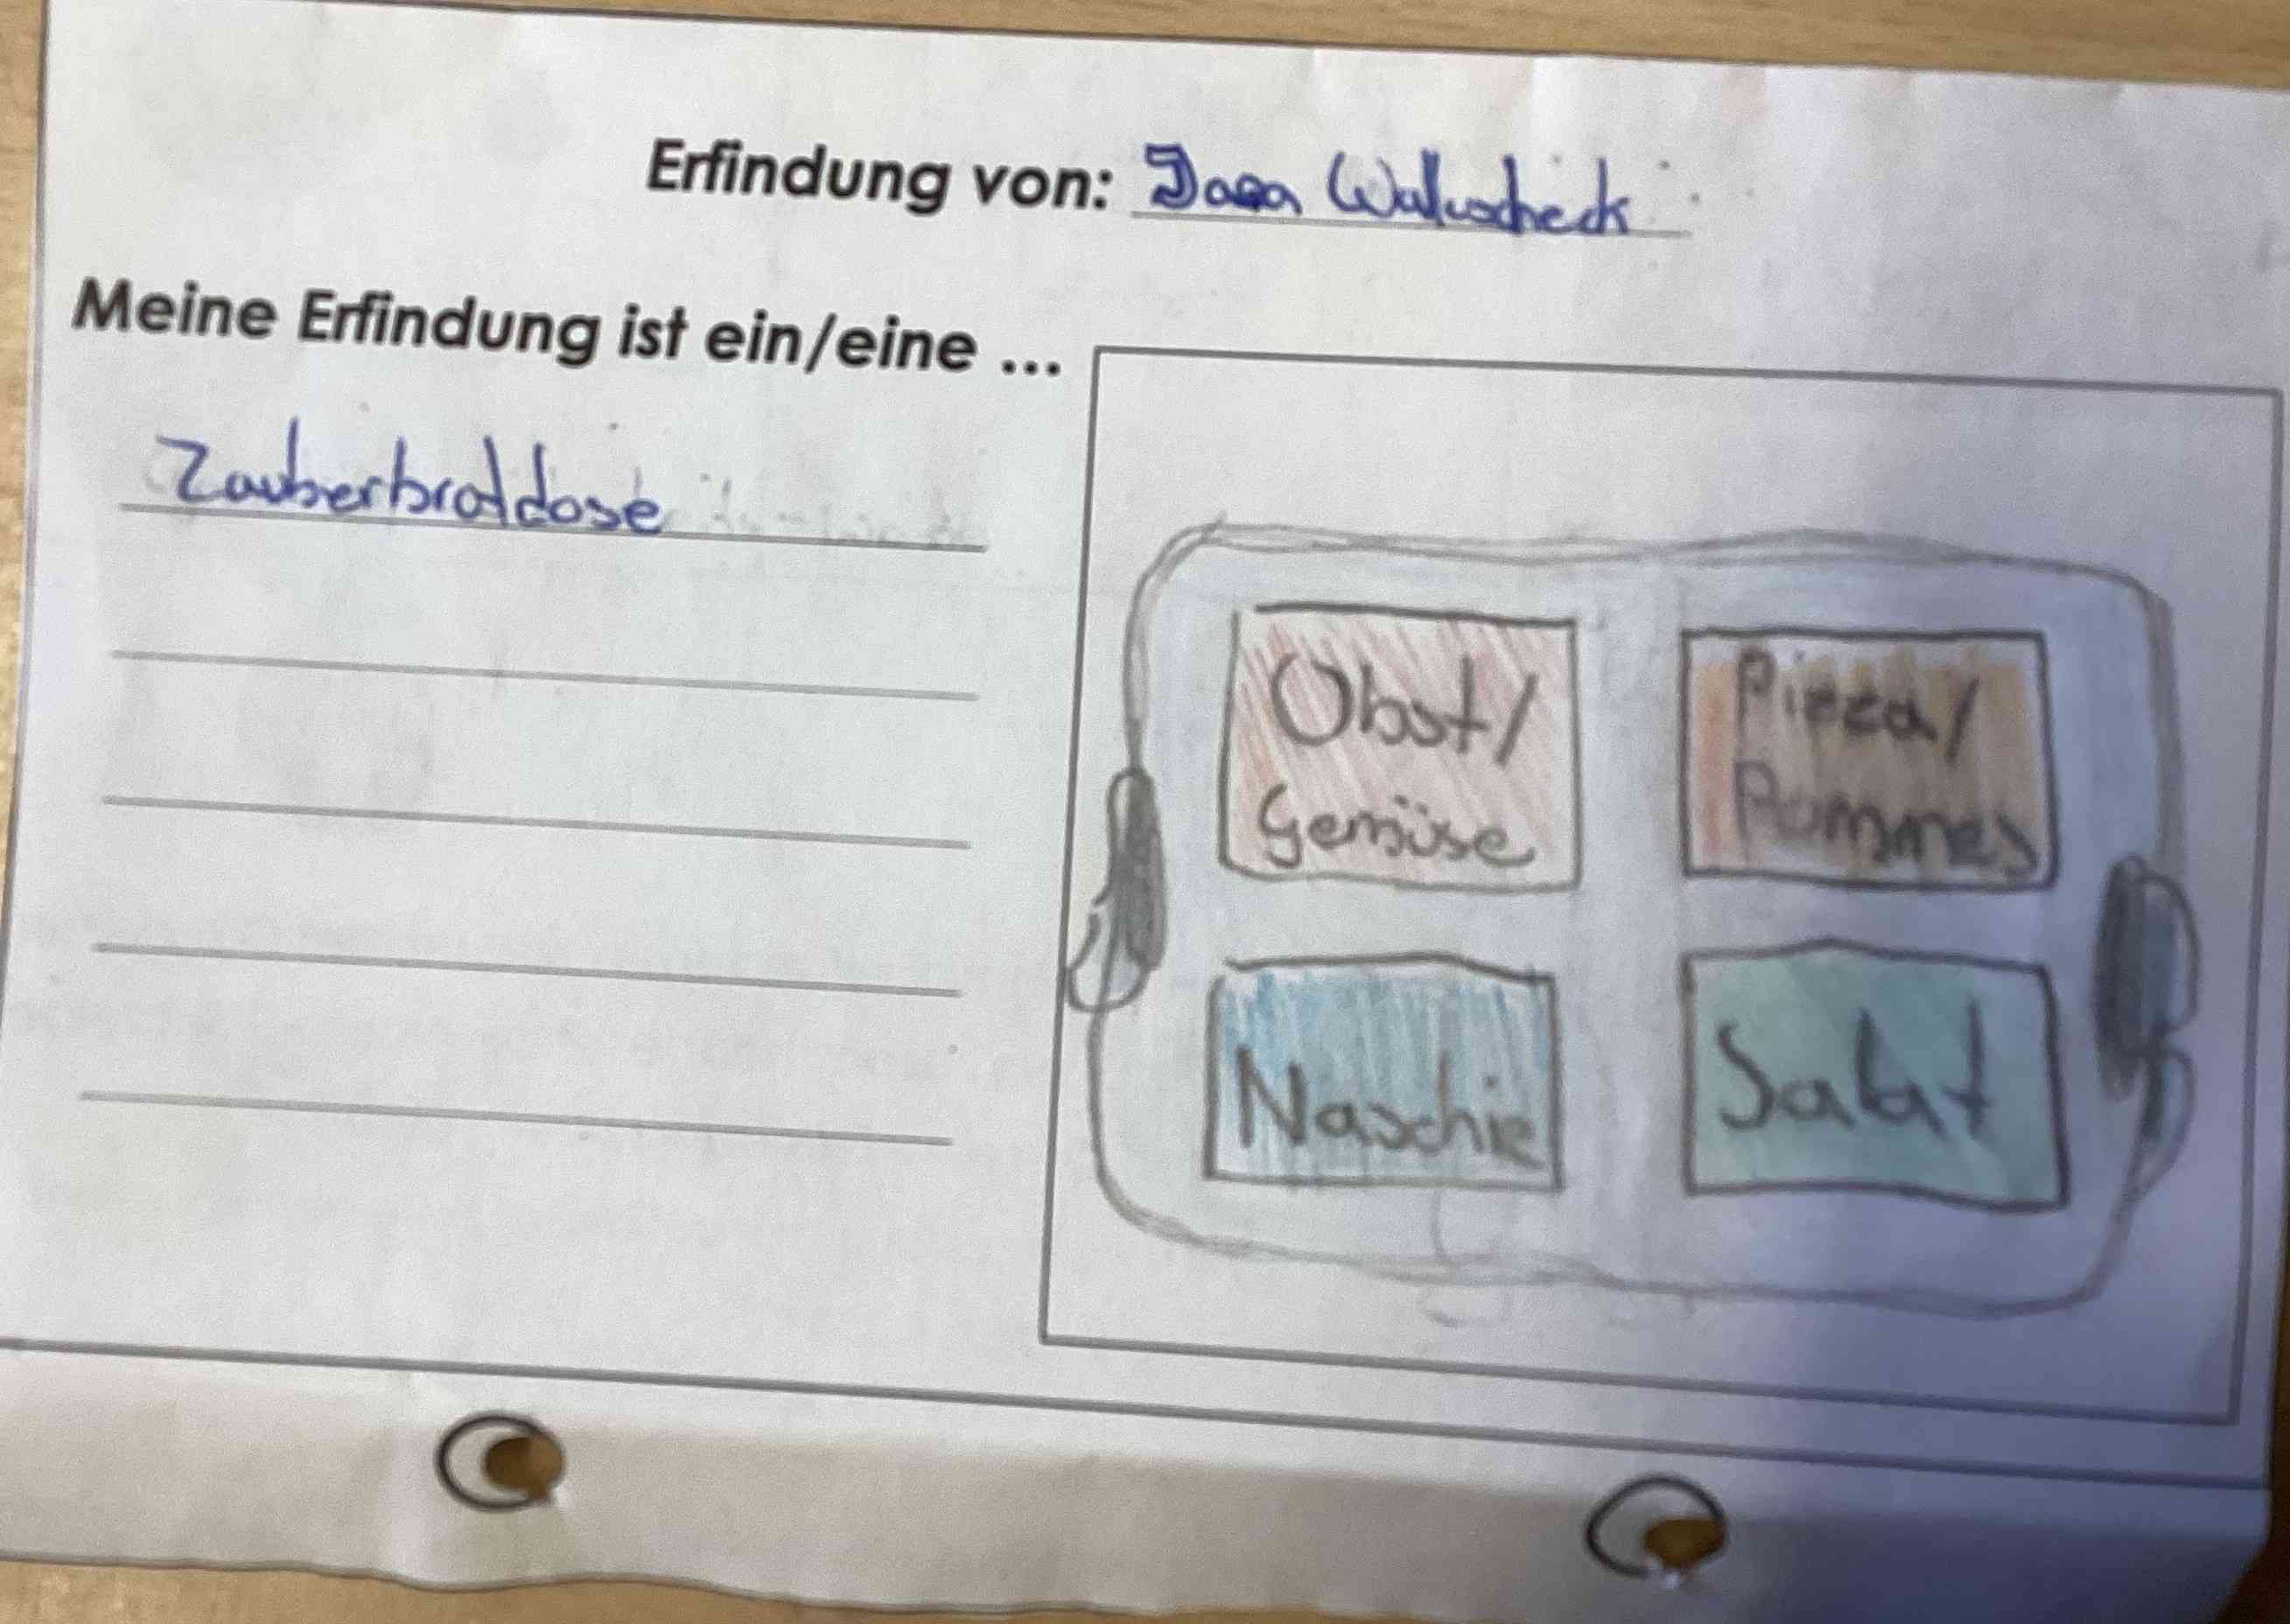 Erfindung von:
Meine Erfindung ist ein/eine ...
Zauberbrotdose
Obst/
Gemüse
Pizza/
Pommes
Naschie
Salat